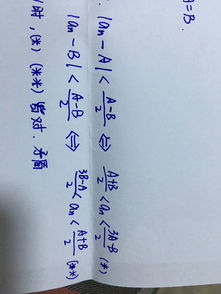 =B.
|an - A| < \frac{A-B}{2} ⇔ \frac{A+B}{2} < an < \frac{3A-B}{2} (*)
|an - B| < \frac{A-B}{2} ⇔ \frac{3B-A}{2} < an < \frac{A+B}{2} (**)
时, (*) (**) 皆对. 矛盾